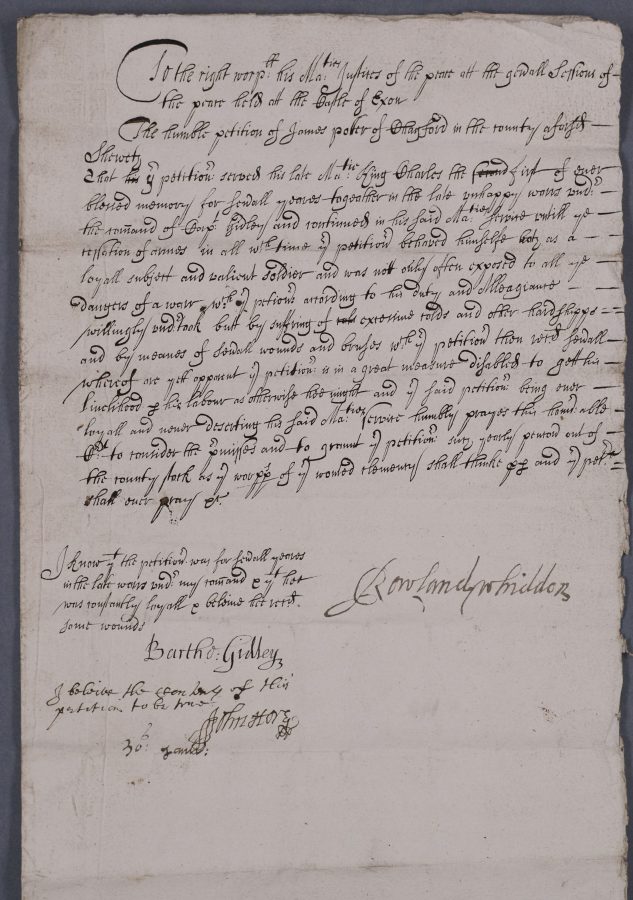 To the right worp:ll his Ma:ties Justices of the peace att the gen'all Sessions of
the peace held att the Castle of Exon
The humble petition of James poker of Chagford in the county aforesd
Sheweth
That his yr petition:r served his late Ma:tie King Charles the second first of ever
blessed memory for sev'all yeares togeather in the late unhappy warrs und:r
the comand of Capt Gidley and continued in his said Ma:ties service untill ye
cessation of armes in all wch time yr petition:r behaved himselfe both as a
loyall subject and valient soldier and was not only often exposed to all ye
dangers of a warr wch yr petion:r according to his duty and Alleagiance
willingly und'took but by suffring of cold extreime colds and other hardshipps
and by meanes of sev'all wounds and bruses wch yr petition:r then rec'd sev'all
whereof are yett apparent yr petition:r is in a great measure disabled to gett his
livelihood p his labour as otherwise hee might and yr said petition:r being ever
loyall and never deserting his said Ma:ties service humbly prayes this hono:r able
to consider the p'mises and to graunt yr petition:r such yearly pencon out of
the county stock as yr worpps of yr wonted clemency shall thinke and yr pet:r
shall ever pray &c
I know yt the petition:r was for sev'all yeares
in the late warrs und:r my comand & yt hee
was constantly loyall & beleive hee recd.
some wounds
Rowland Whiddon
Barth:o: Gidley
I beleive the contents of this
petition to be true
John Hor
30: